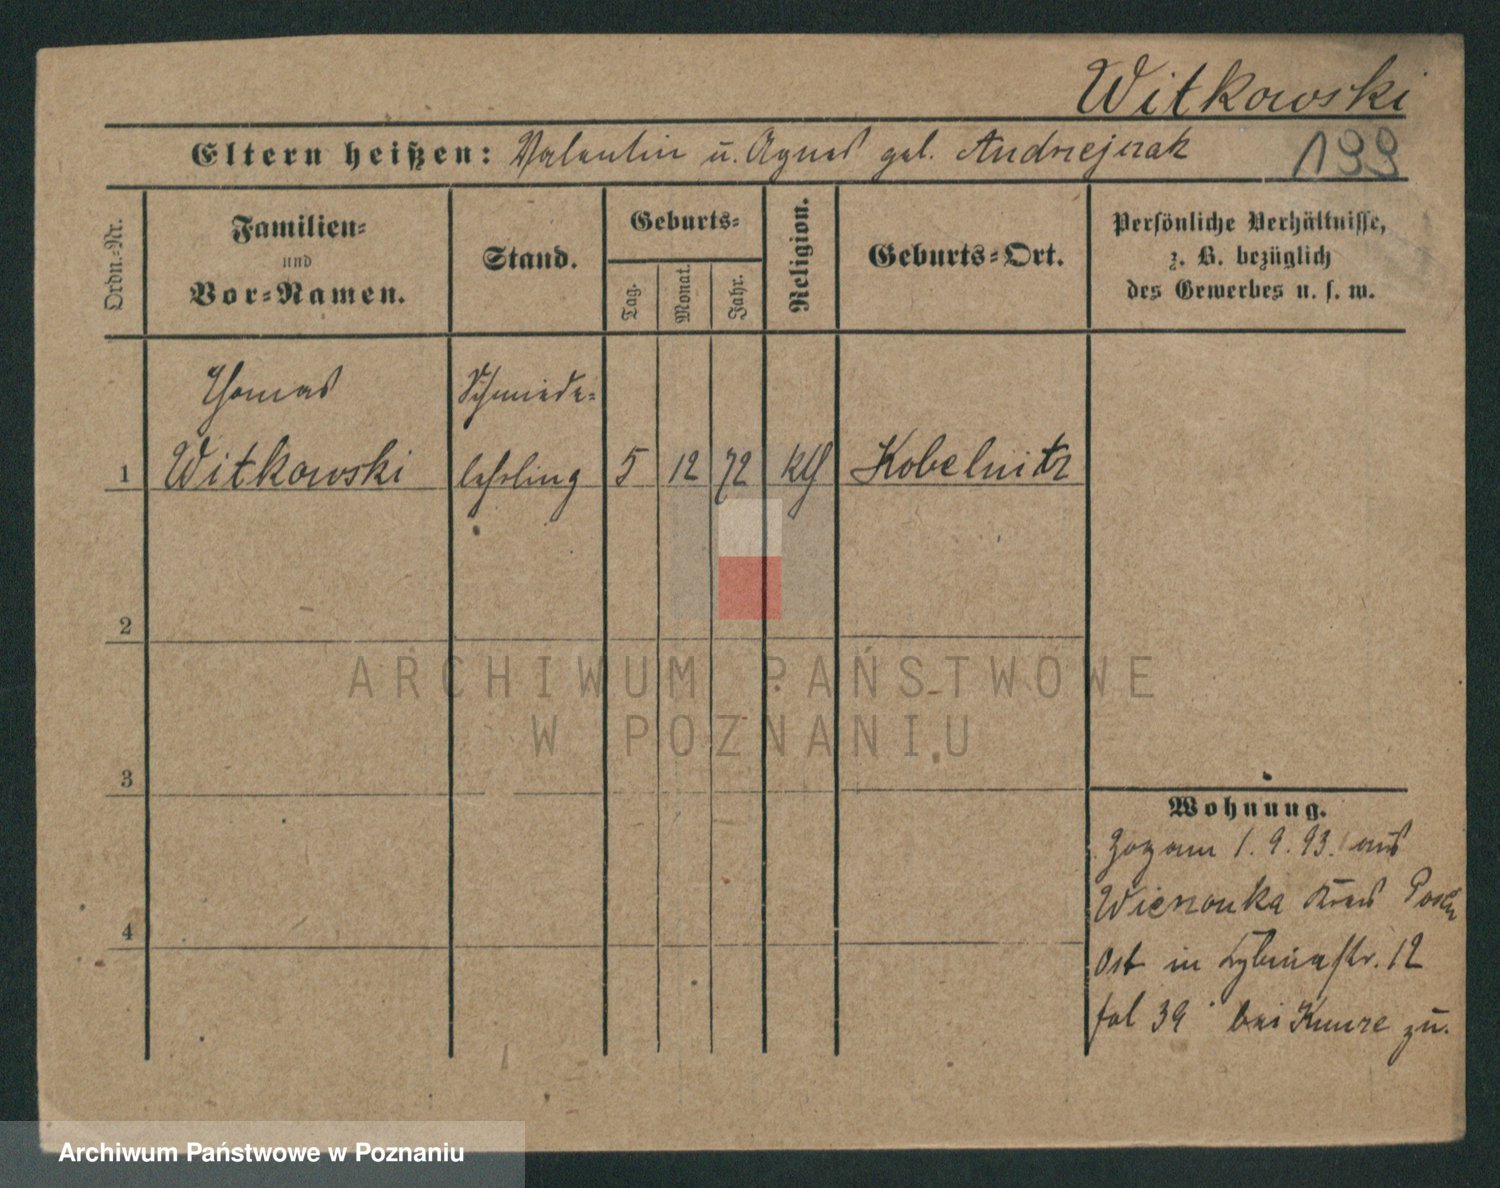 Witkowski
Eltern heißen: Valentin u. Agnes geb. Andrzejczak
199
Ordn.-Nr.
Familien-
und
Vor-Namen.
Stand.
Geburts-
Tag.
Monat.
Jahr.
Religion.
Geburts-Ort.
Persönliche Verhältnisse,
z. B. bezüglich
des Gewerbes u. s. w.
Thomas
Schmiede-
1
Witkowski
lehrling
5
12
72
kth
Kobelnitz
2
3
4
Wohnung.
Zog am 1. 9. 93. aus
Kreis Posen
Ost in 12
fol 39 bei zu.
ARCHIWUM PAŃSTWOWE
W POZNANIU
Archiwum Państwowe w Poznaniu